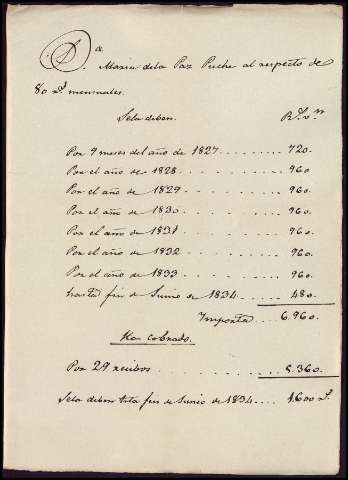 D.ª Maria dela Paz Puche al respecto de
80 r.s mensuales.
Sele deben. R.s v.n
Por 9 meses del año de 1827 . . . . . 720.
Por el año de 1828 . . . . . . . . 960
Por el año de 1829 . . . . . . . . 960.
Por el año de 1830 . . . . . . . . 960.
Por el año de 1831 . . . . . . . . 960.
Por el año de 1832 . . . . . . . . 960.
Por el año de 1833 . . . . . . . . 960.
hasta fin de Junio de 1834 . . . . . 480.
Importa . . . 6.960.
Ha cobrado.
Por 29 recibos . . . . . . . . . 5.360.
Sela deben hta fin de Junio de 1834 . . . . 1.600 r.s